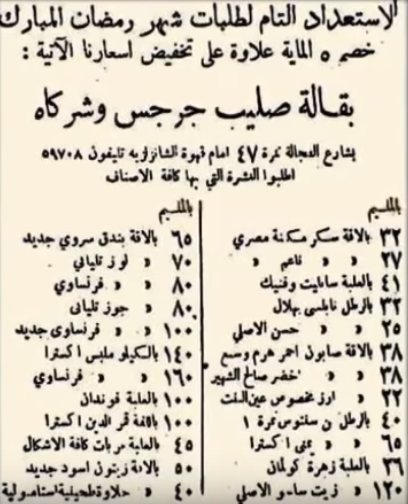 الاستعداد التام لطلبات شهر رمضان المبارك
خصم ٥ الماية علاوة على تخفيض اسعارنا الآتية :
بقالة صليب جرجس وشركاه
بشارع الفجالة نمرة ٤٧ امام قهوة الشانزلزيه تليفون ٥٩٧٠٨
اطلبوا النشرة التي بها كافة الاصناف
بالمليم
٣٢ بالاقة سكر مكنة مصري
٢٧ « « ناعم «
٤١ بالعلبة سانلايت وفنيك
٣٢ بالرطل نابلسي بهلال
٢٥ « « حسن الاصلي
٣٨ بالاقة صابون احمر هرم وسبع
٣٨ « « اخضر صالح الشهير
٢٢ « ارز مخصوص عين البنت
٤٠ بالرطل بن سنتوس نمرة ١
٦٥ « « يمنى اكسترا
٣٦ بالعلبة زهرة كولمان
١٢٠ « زيت الاصلي
بالمليم
٦٥ بالاقة بندق سروي جديد
٧٠ « « لوز تلياني
٨٠ « « فرنساوي
٨٠ « « جوز تلياني
١٠٠ « « فرنساوى جديد
١٤٠ بالكيلو ملبس اكسترا
١٦٠ « « فرنساوي
١٠٠ بالعلبة فوندان
١٠٠ باللفة قمر الدين اكسترا
٤٥ بالعلبة مربات كافة الاشكال
٥٠ بالاقة زيتون اسود جديد
٤٠ « حلاوة طحينية استامبولية